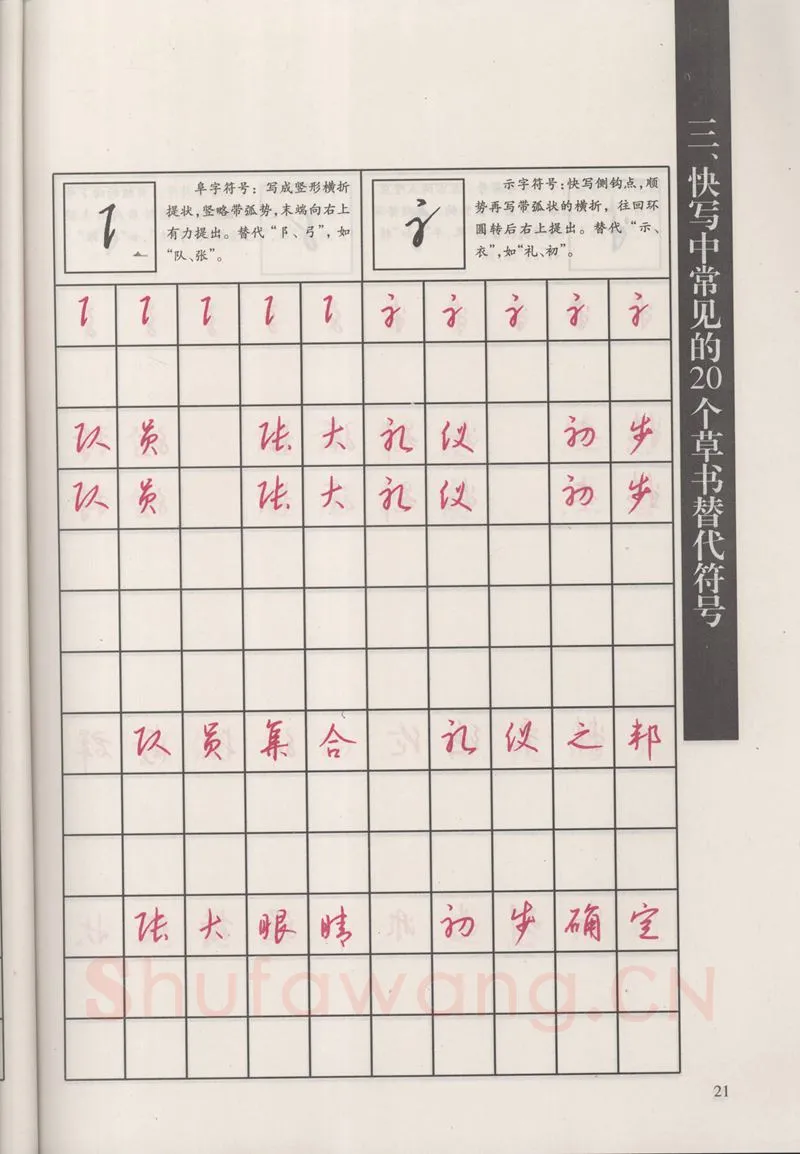 三、快写中常见的20个草书替代符号
阜字符号:写成竖形横折
提状,竖略带弧势,末端向右上
有力提出。替代“阝、弓”,如
“队、张”。
示字符号:快写侧钩点,顺
势再写带弧状的横折,往回环
圆转后右上提出。替代“示、
衣”,如“礼、初”。
队员 张大礼仪 初步
队员 张大礼仪 初步
队员集合 礼仪之邦
张大眼睛 初步确定
Shufawang.CN
21